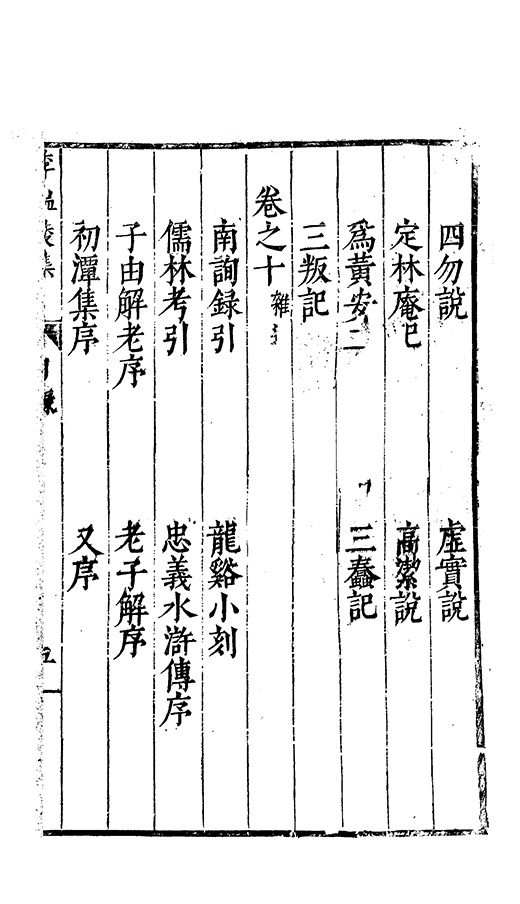 四勿說 虛實說
定林庵記 高潔說
爲黃安二 三蠢記
三叛記
卷之十 雜
南詢錄引 龍谿小刻
儒林考引 忠義水滸傳序
子由解老序 老子解序
初潭集序 又序
李溫陵集 目錄 五